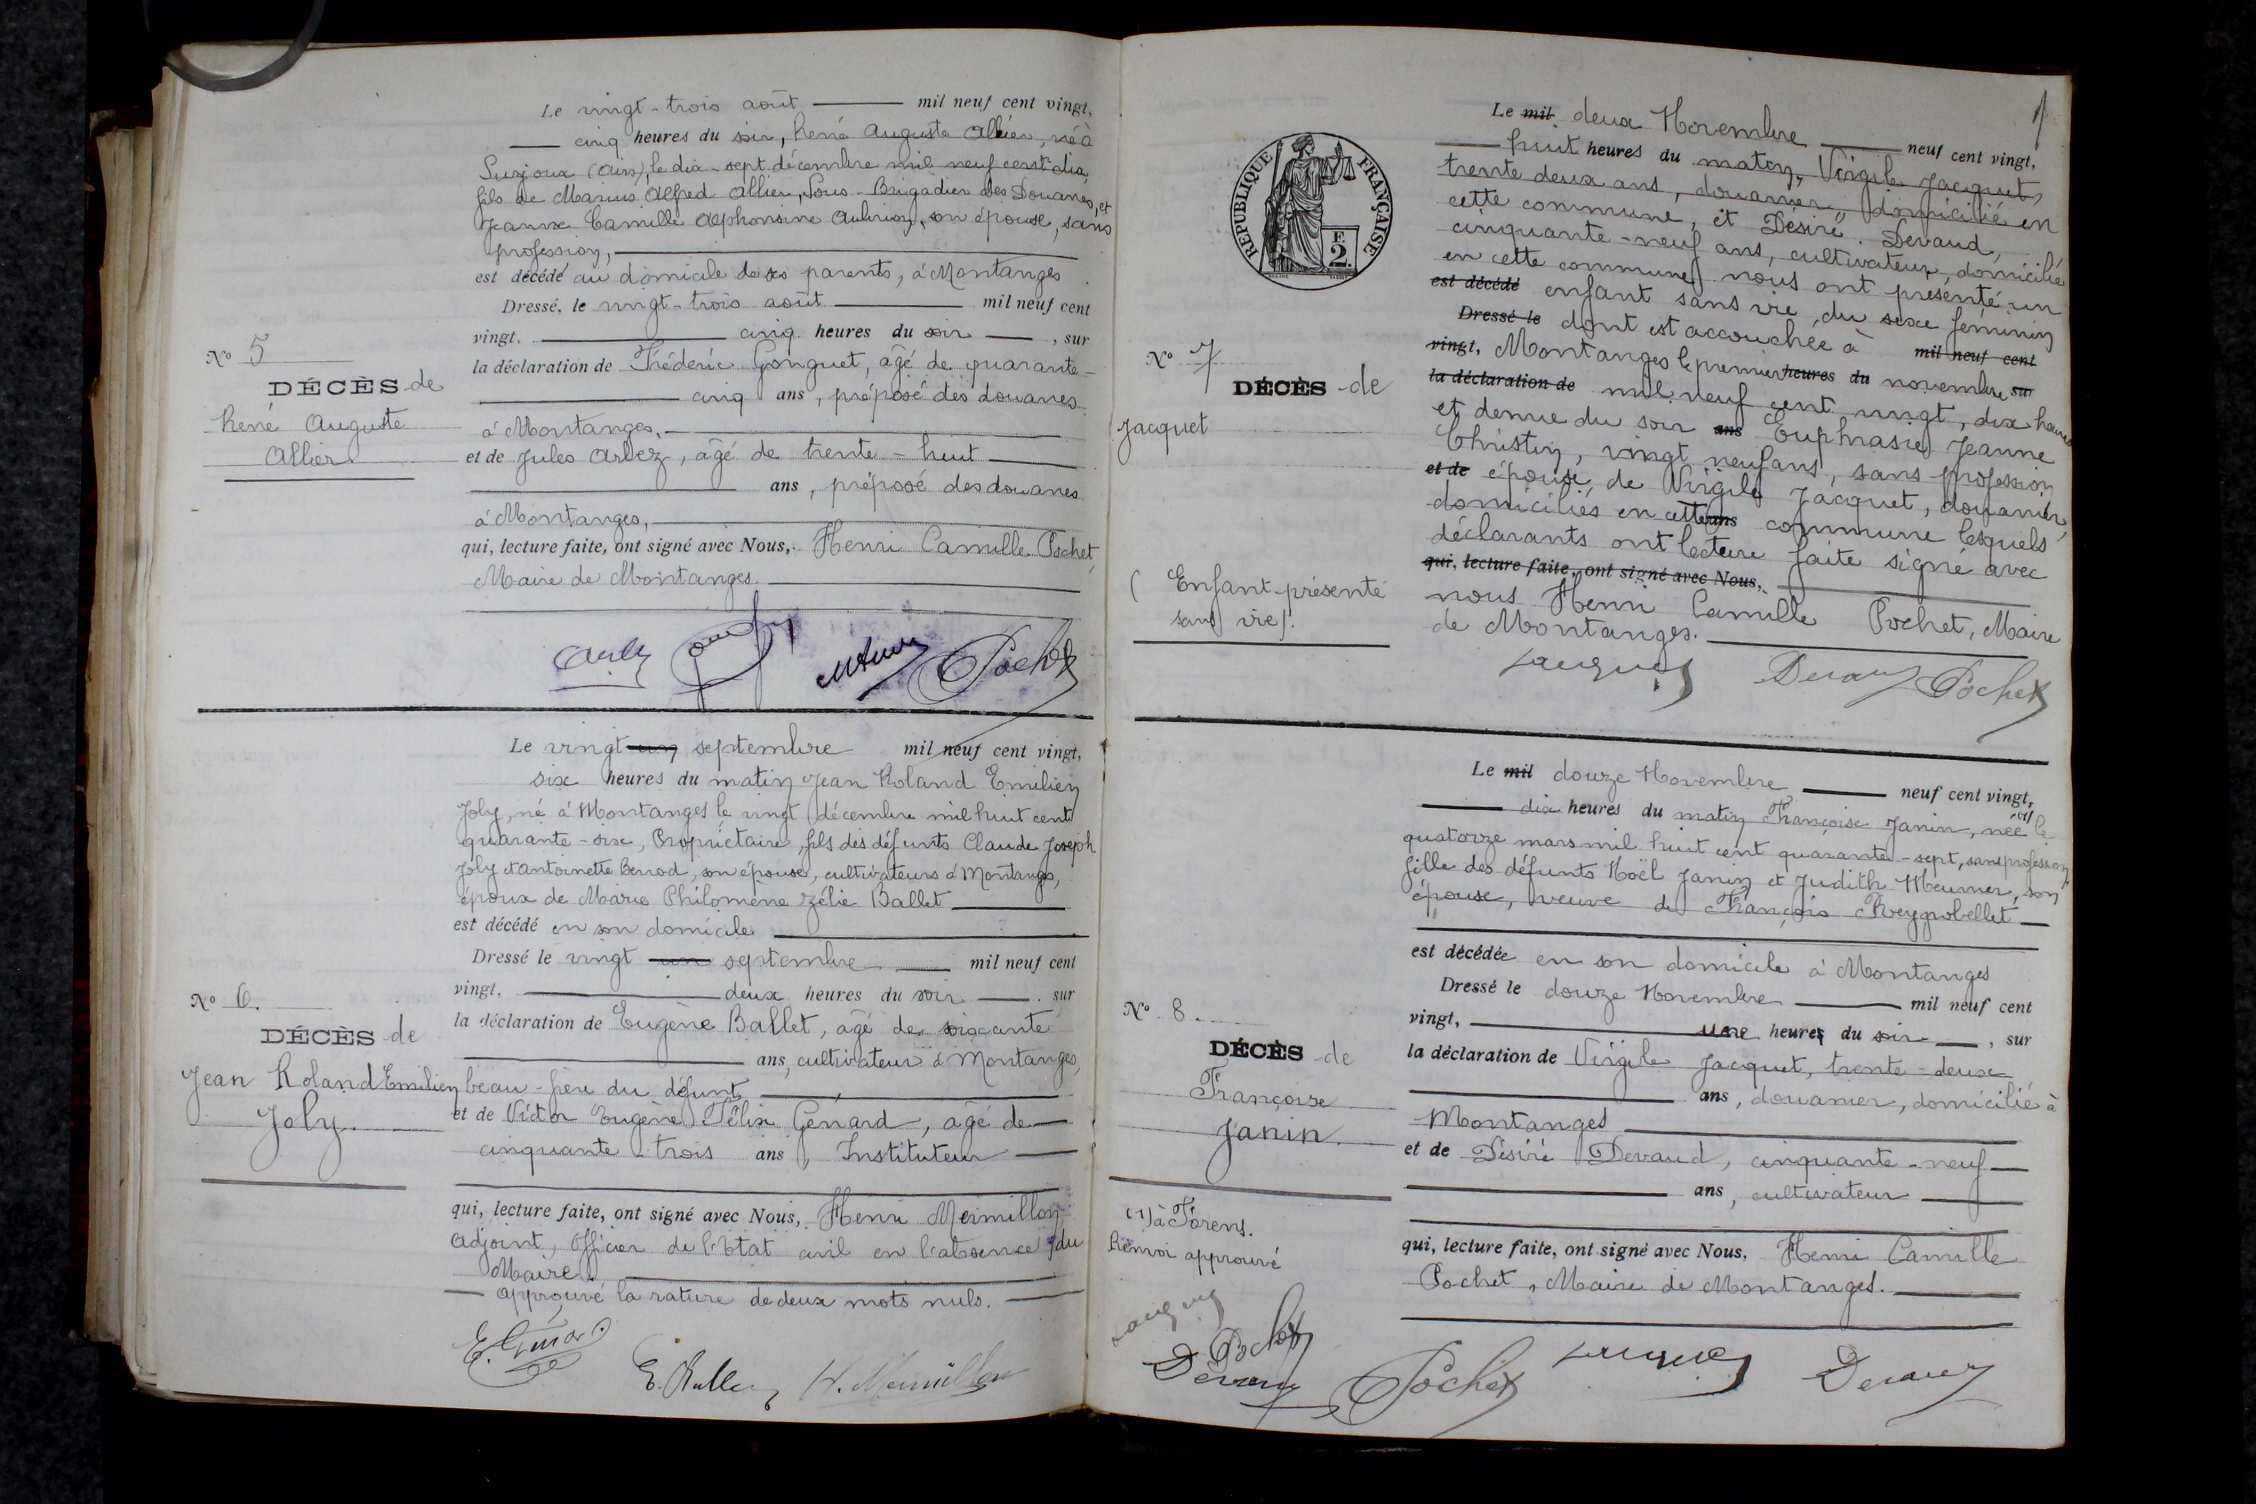 Le vingt-trois août mil neuf cent vingt,
cinq heures du soir, René Auguste Allier, né à
Surjoux (Ain), le dix-sept décembre mil neuf cent dix,
fils de Marius Alfred Allier, Sous-Brigadier des Douanes, et
Jeanne Camille Alphonsine, son épouse, sans
profession,
est décédé au domicile de ses parents, à Montanges
Dressé, le vingt-trois août mil neuf cent
vingt, cinq heures du soir, sur
la déclaration de Fréderic Gonguet, âgé de quarante-
cinq ans, préposé des douanes
à Montanges,
et de Jules Arbez, âgé de trente-huit
ans, préposé des douanes
à Montanges,
qui, lecture faite, ont signé avec Nous, Henri Camille Pochet,
Maire de Montanges.
N° 5
DÉCÈS de
René Auguste
Allier
Pochet
Le vingt un septembre mil neuf cent vingt,
six heures du matin Jean Roland Emilien
Joly, né à Montanges le vingt décembre mil huit cent
quarante-six, Propriétaire, fils des défunts Claude Joseph
Joly et Antoinette Berrod, son épouse, cultivateurs à Montanges,
époux de Marie Philomène Zélie Ballet
est décédé en son domicile
Dressé le vingt un septembre mil neuf cent
vingt, deux heures du soir, sur
la déclaration de Eugène Ballet, âgé de soixante
ans, cultivateur à Montanges,
beau-frère du défunt
et de Victor Eugène Félix Génard, âgé de
cinquante trois ans, Instituteur
qui, lecture faite, ont signé avec Nous, Henri Mermillon
adjoint, Officier de l'Etat civil en l'absence du
Maire.
approuvé la rature de deux mots nuls.
N° 6.
DÉCÈS de
Jean Roland Emilien
Joly
E. Génard
E. Ballet
H. Mermillon
RÉPUBLIQUE FRANÇAISE
F.
2.
Le mil deux Novembre neuf cent vingt,
huit heures du matin, Virgile Jacquet,
trente deux ans, douanier domicilié en
cette commune, et Désiré Devaud,
cinquante-neuf ans, cultivateur, domicilié
en cette commune nous ont présenté un
est décédé enfant sans vie, du sexe féminin
Dressé le dont est accouchée à mil neuf cent
vingt, Montanges le premier heures du novembre sur
la déclaration de mil neuf cent vingt, dix heures
et demie du soir ans Euphrasie Jeanne
Christin, vingt neuf ans, sans profession
et de épouse de Virgile Jacquet, douanier,
domiciliés en cette ans commune lesquels
déclarants ont lecture faite signé avec
qui, lecture faite, ont signé avec Nous,
nous Henri Camille Pochet, Maire
de Montanges.
N° 7
DÉCÈS de
Jacquet
(Enfant présenté
sans vie).
Jacquet Devaud Pochet
Le mil douze Novembre neuf cent vingt,
dix heures du matin Françoise Janin, née (1) le
quatorze mars mil huit cent quarante-sept, sans profession,
fille des défunts Noël Janin et Judith Meunier, son
épouse, veuve de François
est décédée en son domicile à Montanges
Dressé le douze Novembre mil neuf cent
vingt, une heures du soir, sur
la déclaration de Virgile Jacquet, trente-deux
ans, douanier, domicilié à
Montanges
et de Désiré Devaud, cinquante-neuf
ans, cultivateur
qui, lecture faite, ont signé avec Nous, Henri Camille
Pochet, Maire de Montanges.
N° 8.
DÉCÈS de
Françoise
Janin.
(1) à Forens.
Renvoi approuvé
Jacquet
Pochet
Devaud
Pochet Jacquet Devaud